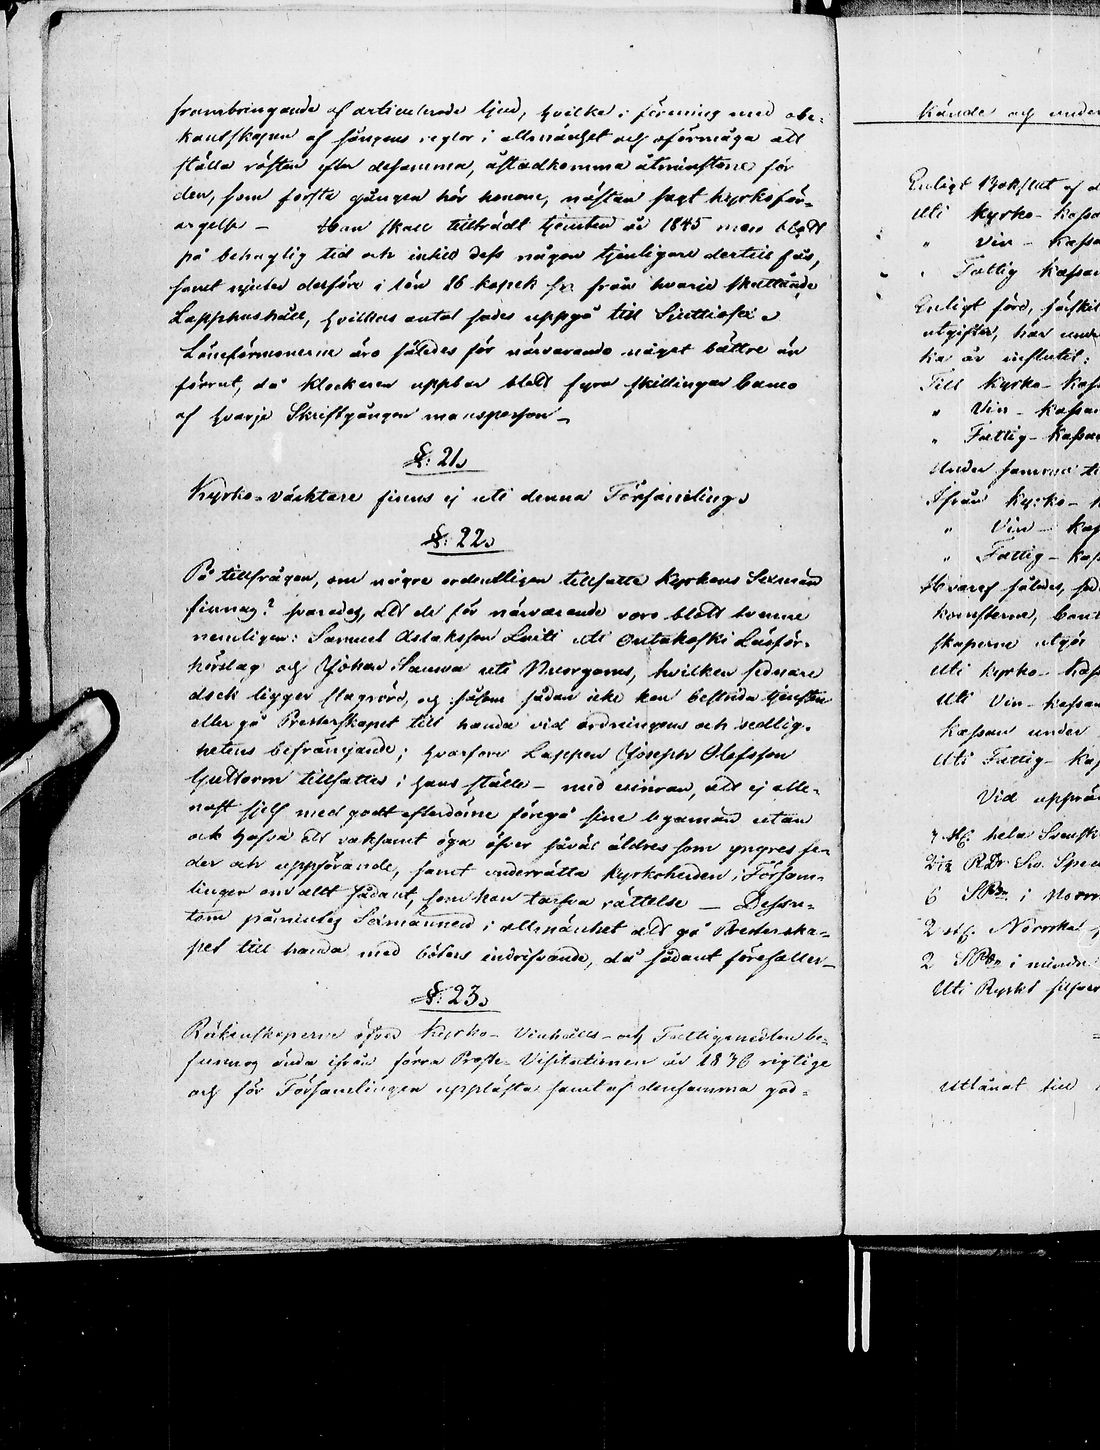 frambringande af articulerade ljud, hvilka i förening med obe-
kantskapen af sångens reglor i allmänhet och oförmåga att
ställa rösten efter desamma, åstadkomma åtminstone för
den, som första gången hör honom, nästan sagt kyrkoför-
argelse – Han skall tillträdt tjensten år 1845 men blott
på behaglig tid och intill dess någon tjenligare dertill fås,
samt njuter derföre i lön 86 kopek S:r från hvarje skattande
Lapphushåll, hvilkas antal sades uppgå till
Löneförmonerna äro således för närvarande något bättre än
förrut, då klockaren uppbar blott fyra skillingar Banco
af hvarje Skriftgången mansperson –
§: 21.
Kyrko-väktare finns ej uti denna Församling.
§: 22.
På tillfrågan, om några ordentligen tillsatte Kyrkans Sexmän
finnas? svarades, att de för närvarande voro blott tvenne
nemligen: Samuel Aslaksson Laiti uti Outakoski Läsför-
hörslag och Johan Sauva uti Nuorgams, hvilken sednare
dock ligger slagrörd, och såsom sådan icke kan bestrida tjensten
eller gå Presterskapet till handa vid ordningens och sedlig-
hetens befrämjande; hvarföre Lappen Joseph Olofsson
Guttorm tillsattes i hans ställe – med erinran, att ej alle-
nast sjelf med godt efterdöme föregå sine byamän utan
ock hafva ett vaksamt öga öfver såväl äldres som yngres se-
der och uppförande, samt underrätta Kyrkoherden i Försam-
lingen om allt sådant, som kan tarfva rättelse – Dessu-
tom påmintes Sexmännen i allmänhet att gå Presterska-
pet till handa med böters indrifvande, då sådant förefaller –
§: 23.
Räkenskaperne öfver Kyrko- Vinhålls- och Fattigmedlen be-
funnos ända ifrån förra Prosts-Visitationen år 1836 rigtige
och för Församlingen uppläste samt af densamma god-
kände och under
Enligt Bokslut af d
Uti Kyrko-Kassa
" Vin-Kassa
" Fattig Kassan
Enligt förd, särskil
utgifter, har unde
ka år influtit:
Till Kyrko-Kass
" Vin-Kassan
" Fattig-Kassa
Under samma ti
Ifrån Kyrko-K
" Vin-Kas
" Fattig-Kas
Hvaraf således, sed
komsterne, Cont
skaperne utgör
Uti Kyrko-Kass
Uti Vin-Kassan
Kassan under
Uti Fattig-Kas
Vid uppräk
hela Svensk
R:Dr Sv. Spec
6
2 st. Norska
2 i mindre
Uti Ryskt silfver
Utlånat till